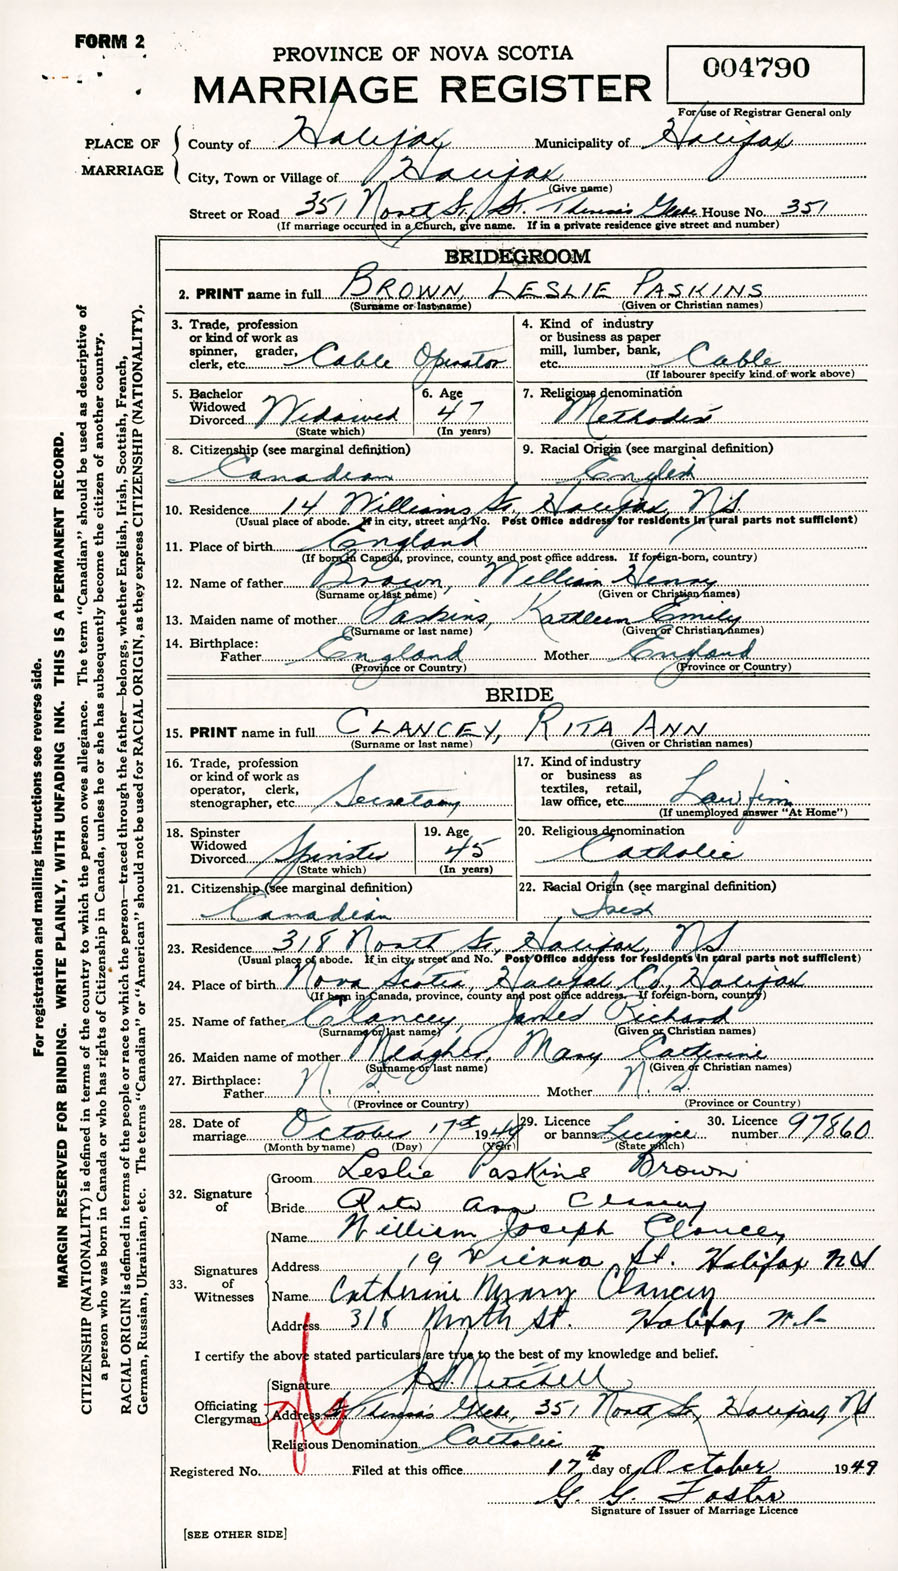 FORM 2
PROVINCE OF NOVA SCOTIA
MARRIAGE REGISTER
004790
For use of Registrar General only
PLACE OF MARRIAGE
County of Halifax Municipality of Halifax
City, Town or Village of Halifax
(Give name)
Street or Road 351 North St. St. Theresa's Glebe House No. 351
(If marriage occurred in a Church, give name. If in a private residence give street and number)
BRIDEGROOM
2. PRINT name in full BROWN, LESLIE PASKINS
(Surname or last name) (Given or Christian names)
3. Trade, profession or kind of work as spinner, grader, clerk, etc. Cable Operator
4. Kind of industry or business as paper mill, lumber, bank, etc. Cable
(If labourer specify kind of work above)
5. Bachelor Widowed Divorced Widowed
(State which)
6. Age 47
(In years)
7. Religious denomination
Methodist
8. Citizenship (see marginal definition)
Canadian
9. Racial Origin (see marginal definition)
English
10. Residence 14 Williams St, Halifax, NS
(Usual place of abode. If in city, street and No. Post Office address for residents in rural parts not sufficient)
11. Place of birth England
(If born in Canada, province, county and post office address. If foreign-born, country)
12. Name of father Brown, William Henry
(Surname or last name) (Given or Christian names)
13. Maiden name of mother Paskins, Kathleen Emily
(Surname or last name) (Given or Christian names)
14. Birthplace:
Father England Mother England
(Province or Country) (Province or Country)
BRIDE
15. PRINT name in full CLANCEY, RITA ANN
(Surname or last name) (Given or Christian names)
16. Trade, profession or kind of work as operator, clerk, stenographer, etc. Secretary
17. Kind of industry or business as textiles, retail, law office, etc. Law firm
(If unemployed answer "At Home")
18. Spinster Widowed Divorced Spinster
(State which)
19. Age 45
(In years)
20. Religious denomination
Catholic
21. Citizenship (see marginal definition)
Canadian
22. Racial Origin (see marginal definition)
Irish
23. Residence 318 North St, Halifax, NS
(Usual place of abode. If in city, street and No. Post Office address for residents in rural parts not sufficient)
24. Place of birth Nova Scotia, Halifax Co, Halifax
(If born in Canada, province, county and post office address. If foreign-born, country)
25. Name of father Clancey, James Richard
(Surname or last name) (Given or Christian names)
26. Maiden name of mother Meagher, Mary Catherine
(Surname or last name) (Given or Christian names)
27. Birthplace:
Father N. S. Mother N. S.
(Province or Country) (Province or Country)
28. Date of marriage October 17th 1949
(Month by name) (Day) (Year)
29. Licence or banns Licence
(State which)
30. Licence number 97860
32. Signature of
Groom Leslie Paskins Brown
Bride Rita Ann Clancey
33. Signatures of Witnesses
Name William Joseph Clancey
Address 19 Vienna St. Halifax NS
Name Catherine Mary Clancey
Address 318 North St. Halifax N.S.
I certify the above stated particulars are true to the best of my knowledge and belief.
Officiating Clergyman
Signature Mitchell
Address St Theresa's Glebe, 351 North St, Halifax, NS
Religious Denomination Catholic
Registered No. Filed at this office 17th day of October 1949
G. G. Foster
Signature of Issuer of Marriage Licence
[SEE OTHER SIDE]
For registration and mailing instructions see reverse side.
MARGIN RESERVED FOR BINDING. WRITE PLAINLY, WITH UNFADING INK. THIS IS A PERMANENT RECORD.
CITIZENSHIP (NATIONALITY) is defined in terms of the country to which the person owes allegiance. The term "Canadian" should be used as descriptive of
a person who was born in Canada or who has rights of Citizenship in Canada, unless he or she has subsequently become the citizen of another country.
RACIAL ORIGIN is defined in terms of the people or race to which the person—traced through the father—belongs, whether English, Irish, Scottish, French,
German, Russian, Ukrainian, etc. The terms "Canadian" or "American" should not be used for RACIAL ORIGIN, as they express CITIZENSHIP (NATIONALITY).